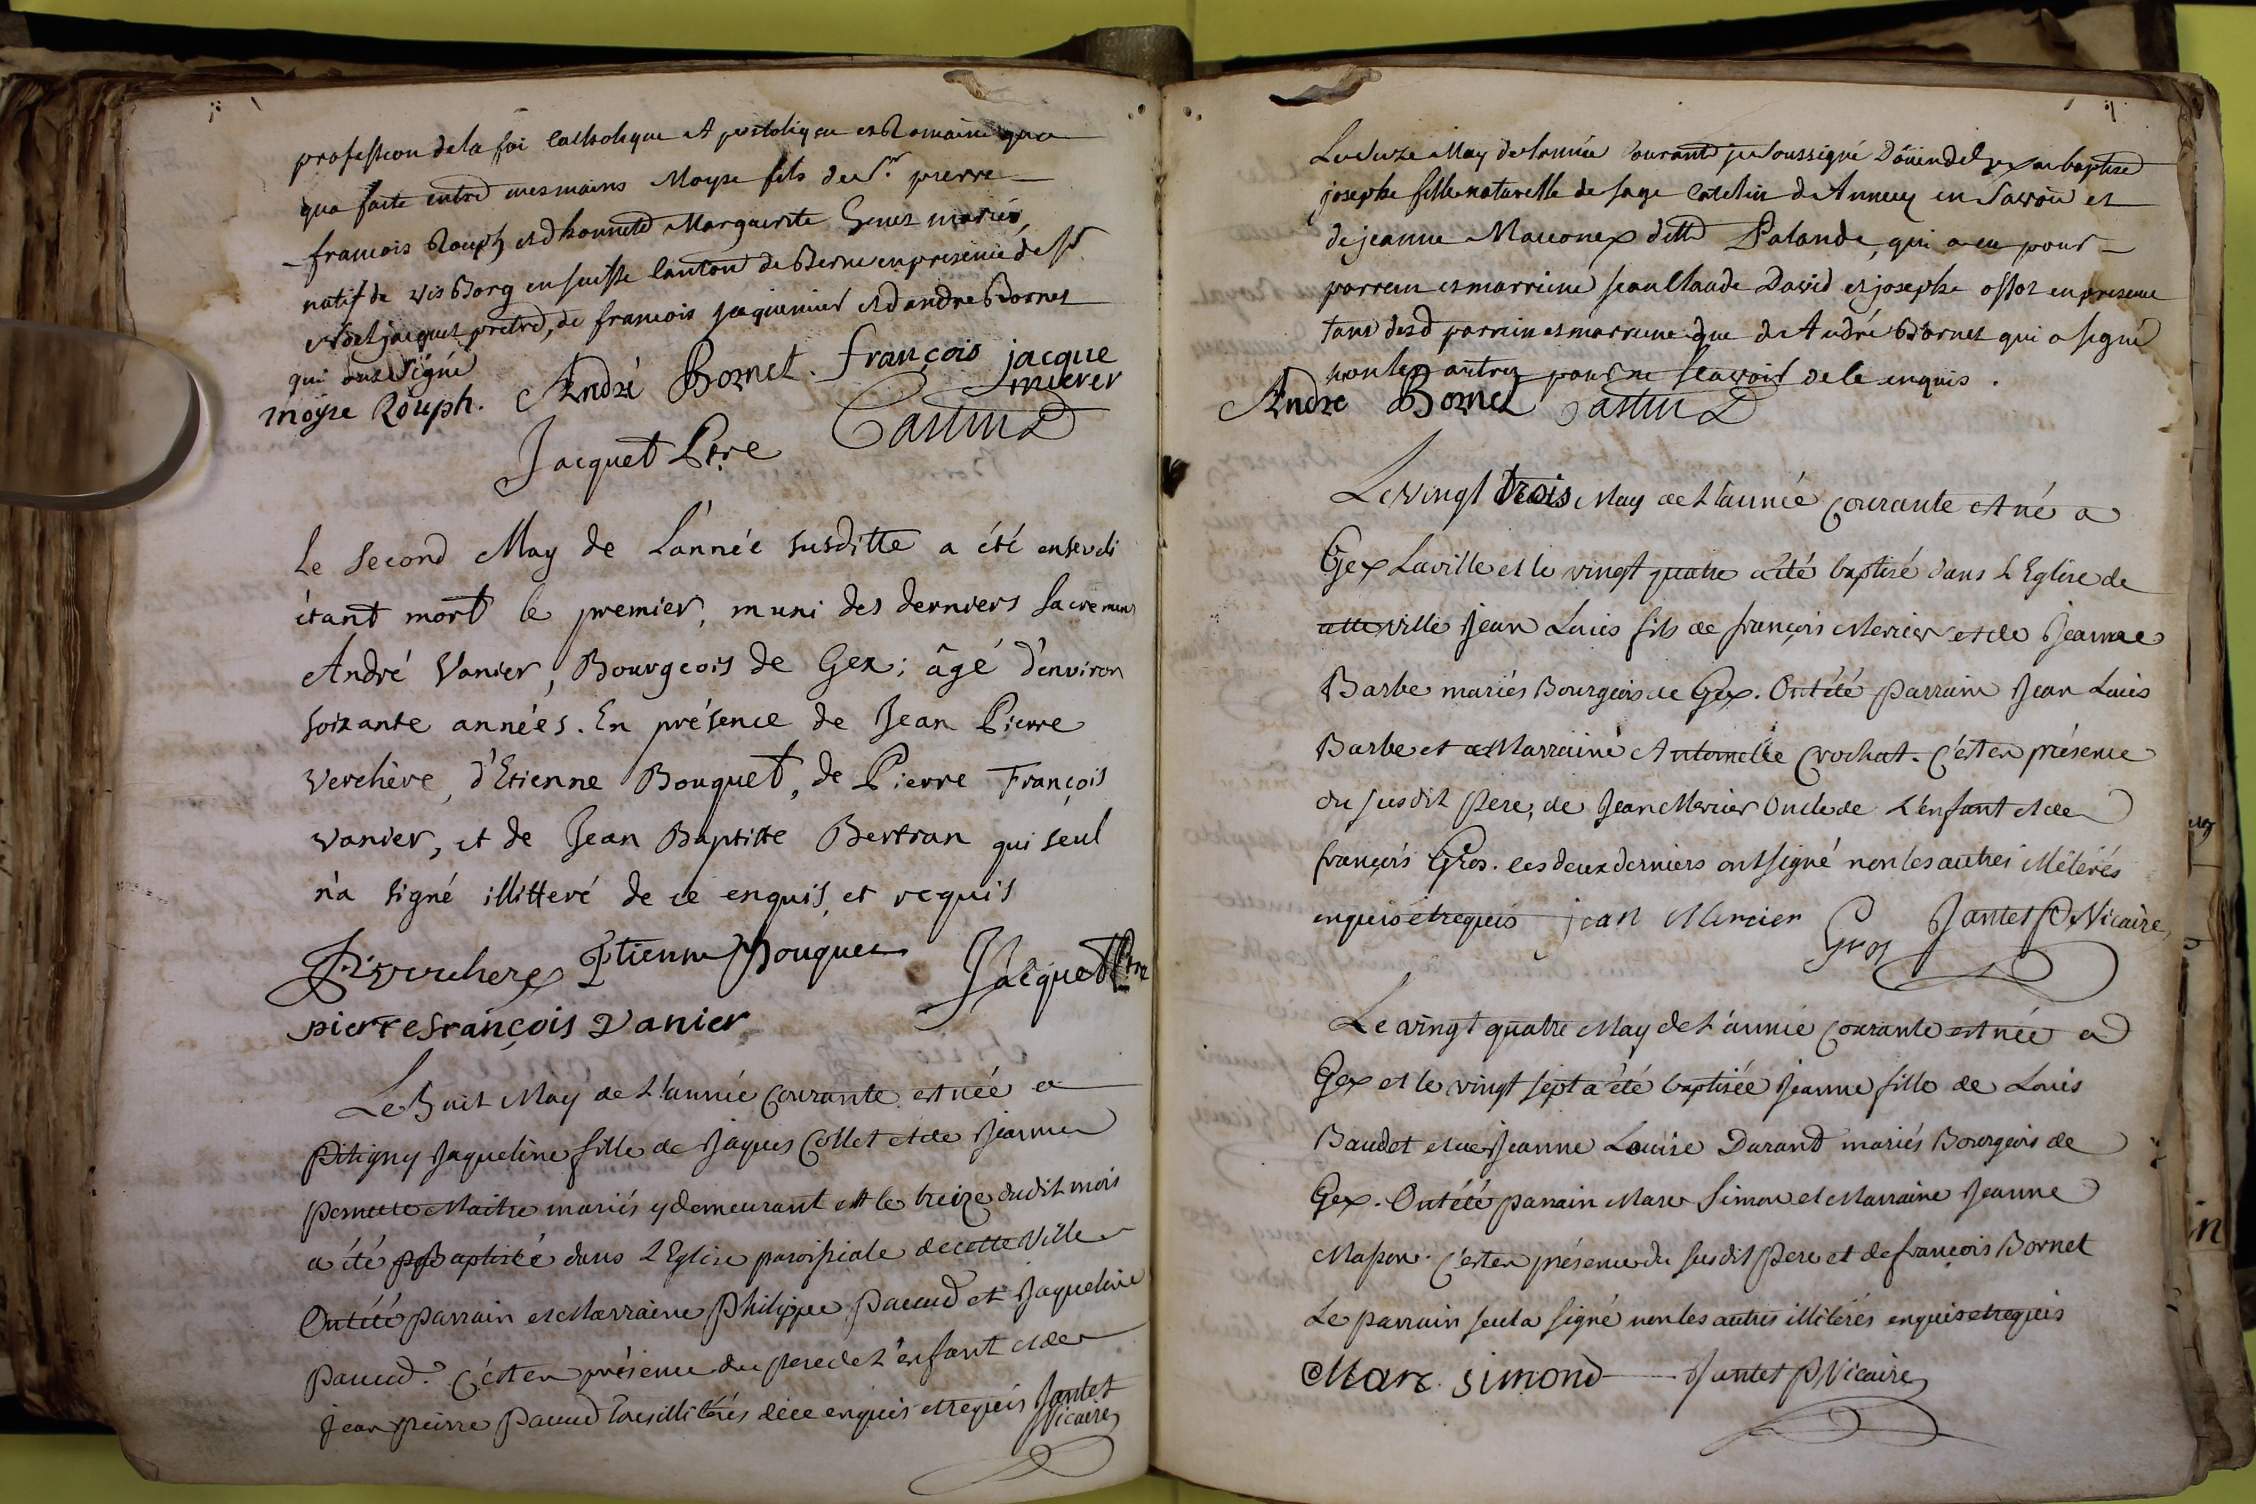 profession de la foi catholique Apostolique et Romaine que
qua faite entre mes mains Moyse fils de sr. pierre
francois Rouph et d'honnete Marguerite Genet mariés,
natif de visBorg en suisse Canton de Berne en presence de sr
jacquet pretre, de francois jaquemier et d'andre Bornet
qui ont signé
moÿse Roûph. André Bornet. françois jacque
mierer
Jacquet Ptre Castin
Le second May de L'année susditte a été enseveli
étant mort le premier, muni des derniers sacremens
André Vanier, Bourgeois de Gex; âgé d'environ
soixante années. En présence de Jean Pierre
Verchère, d'Etienne Bouquet, de Pierre François
Vanier, et de Jean Baptiste Bertran qui seul
n'a signé illitteré de ce enquis et requis
Verchere Etienne Bouquet Jacquet Ptre
pierre françois Vanier
Le huit May de L'année Courante est née a
Pitigny Jaqueline fille de Jaques Collet et de Jeanne
Pernette Maitre mariés y demeurant et le treize dudit mois
a été Baptisée dans L'Eglise paroissiale de cette Ville
Ont été parrain et Marraine Philippe Pacud et Jaqueline
Pacud. C'est en présence du pere de L'enfant et de
Jean pierre Pacud tous illiterés de ce enquis et requis Jantet
P Vicaire
Le douze May de l'année courante je soussigné Doïen de Gex ai baptisé
josephe fille naturelle de sage de Annecy en Savoie et
de jeanne Maconex ditte Lalande, qui a eu pour
parrein et marreine jean Claude David et josephe ostoz en presence
tant desd parrein et marreine que de André Bornet qui a signé
non les autres pour ne scavoir de ce enquis.
André Bornet Castin
Le vingt trois May de L'année Courante est né a
Gex La ville et le vingt quatre a été baptisé dans L'Eglise de
cette ville Jean Louis fils de françois Mercier et de Jeanne
Barbe mariés Bourgeois de Gex. Ont été Parrain Jean Louis
Barbe et Marraine Antoinette Crochat. C'est en présence
du susdit Pere, de Jean Mercier Oncle de L'enfant et de
françois Gros. ces deux derniers ont signé non les autres illétérés
enquis et requis jean Mercier Gros Jantet P Vicaire
Le vingt quatre May de L'année Courante est née a
Gex et le vingt sept a été baptisée Jeanne fille de Louis
Baudet et de Jeanne Louise Durand mariés Bourgeois de
Gex. Ont été parrain Marc Simon et Marraine Jeanne
Masson. C'est en présence du susdit Pere et de françois Bornet
Le parrain seul a signé non les autres illiterés enquis et requis
Marc Simond Jantet P Vicaire